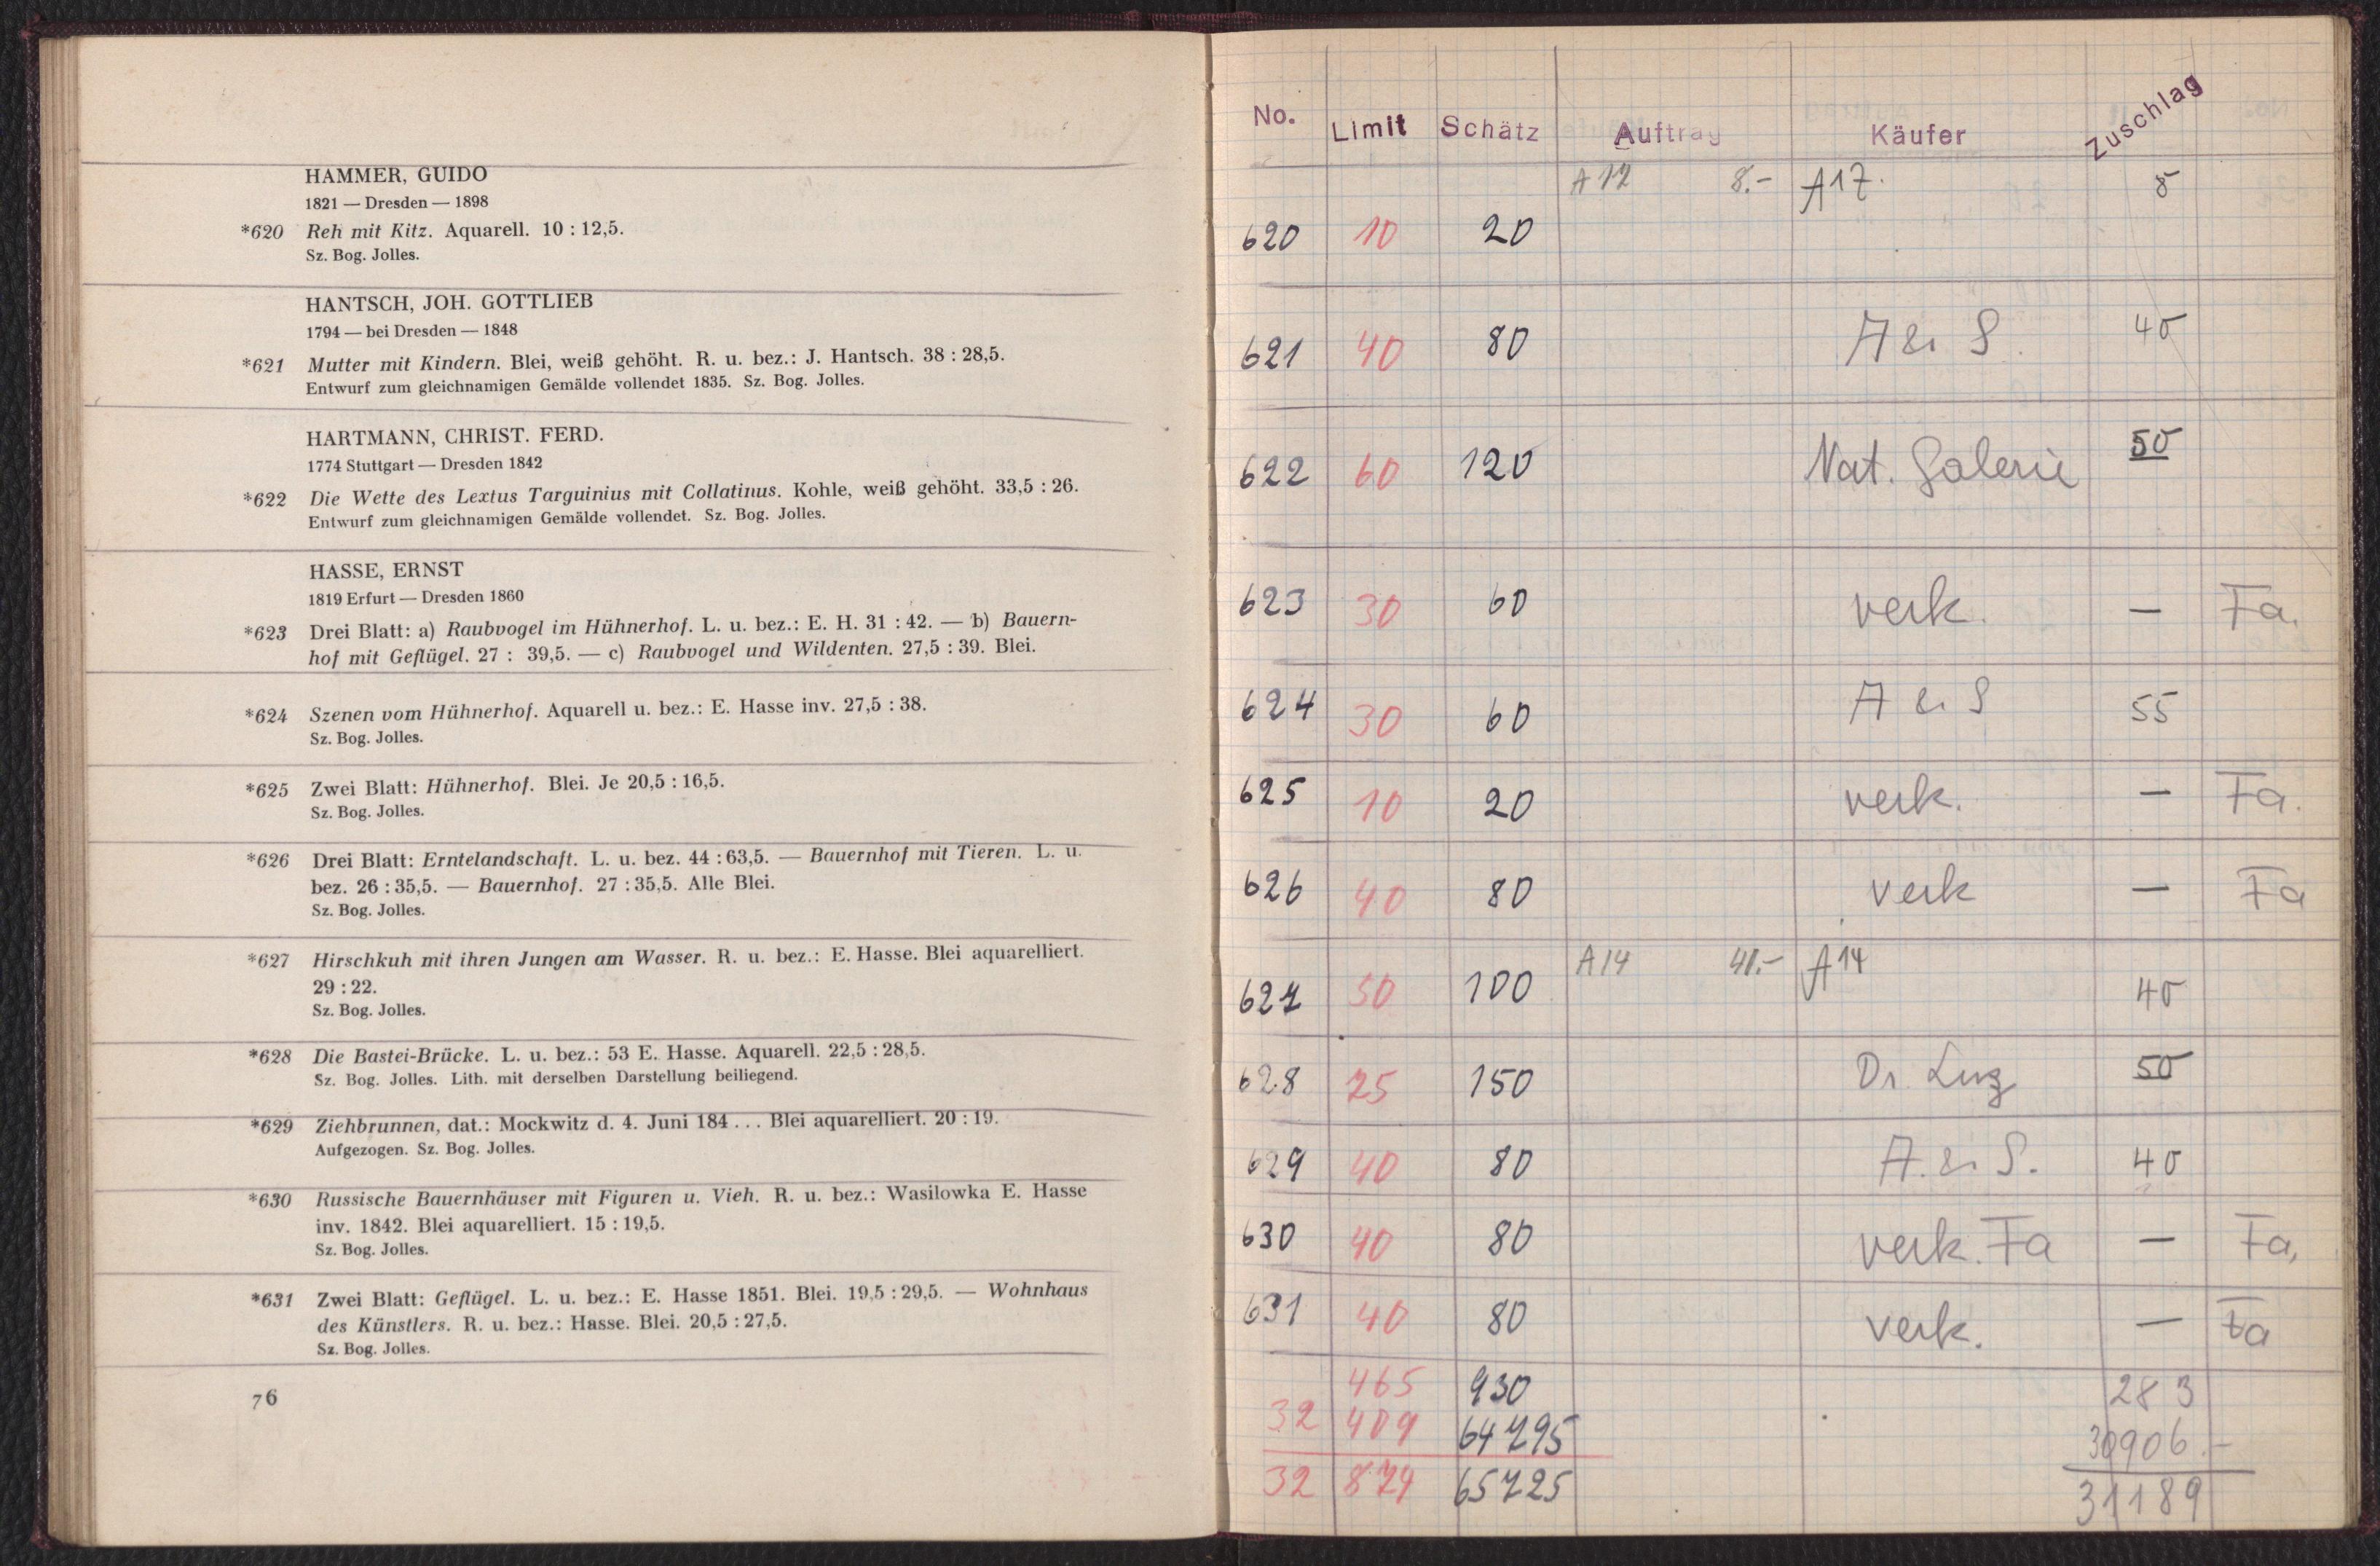 HAMMER, GUIDO
1821 — Dresden — 1898
*620 Reh mit Kitz. Aquarell. 10 : 12,5.
Sz. Bog. Jolles.
HANTSCH, JOH. GOTTLIEB
1794 — bei Dresden — 1848
*621 Mutter mit Kindern. Blei, weiß gehöht. R. u. bez.: J. Hantsch. 38 : 28,5.
Entwurf zum gleichnamigen Gemälde vollendet 1835. Sz. Bog. Jolles.
HARTMANN, CHRIST. FERD.
1774 Stuttgart — Dresden 1842
*622 Die Wette des Lextus Targuinius mit Collatinus. Kohle, weiß gehöht. 33,5 : 26.
Entwurf zum gleichnamigen Gemälde vollendet. Sz. Bog. Jolles.
HASSE, ERNST
1819 Erfurt — Dresden 1860
*623 Drei Blatt: a) Raubvogel im Hühnerhof. L. u. bez.: E. H. 31 : 42. — b) Bauern-
hof mit Geflügel. 27 : 39,5. — c) Raubvogel und Wildenten. 27,5 : 39. Blei.
*624 Szenen vom Hühnerhof. Aquarell u. bez.: E. Hasse inv. 27,5 : 38.
Sz. Bog. Jolles.
*625 Zwei Blatt: Hühnerhof. Blei. Je 20,5 : 16,5.
Sz. Bog. Jolles.
*626 Drei Blatt: Erntelandschaft. L. u. bez. 44 : 63,5. — Bauernhof mit Tieren. L. u.
bez. 26 : 35,5. — Bauernhof. 27 : 35,5. Alle Blei.
Sz. Bog. Jolles.
*627 Hirschkuh mit ihren Jungen am Wasser. R. u. bez.: E. Hasse. Blei aquarelliert.
29 : 22.
Sz. Bog. Jolles.
*628 Die Bastei-Brücke. L. u. bez.: 53 E. Hasse. Aquarell. 22,5 : 28,5.
Sz. Bog. Jolles. Lith. mit derselben Darstellung beiliegend.
*629 Ziehbrunnen, dat.: Mockwitz d. 4. Juni 184 . . . Blei aquarelliert. 20 : 19.
Aufgezogen. Sz. Bog. Jolles.
*630 Russische Bauernhäuser mit Figuren u. Vieh. R. u. bez.: Wasilowka E. Hasse
inv. 1842. Blei aquarelliert. 15 : 19,5.
Sz. Bog. Jolles.
*631 Zwei Blatt: Geflügel. L. u. bez.: E. Hasse 1851. Blei. 19,5 : 29,5. — Wohnhaus
des Künstlers. R. u. bez.: Hasse. Blei. 20,5 : 27,5.
Sz. Bog. Jolles.
76
No. Limit Schätz Auftrag Käufer Zuschlag
A 17 8.- A17. 8
620 10 20
621 40 80 A & S. 40
622 60 120 Nat. Galerie 50
623 30 60 verk. — Fa.
624 30 60 A & S 55
625 10 20 verk. — Fa.
626 40 80 verk — Fa
A 14 41.- A 14
627 50 100 40
628 75 150 Dr. Luz 50
629 40 80 A. & S. 40
630 40 80 verk. Fa — Fa,
631 40 80 verk. — Fa
465 930 283
32 409 64795 30906.-
32 874 65725 31189